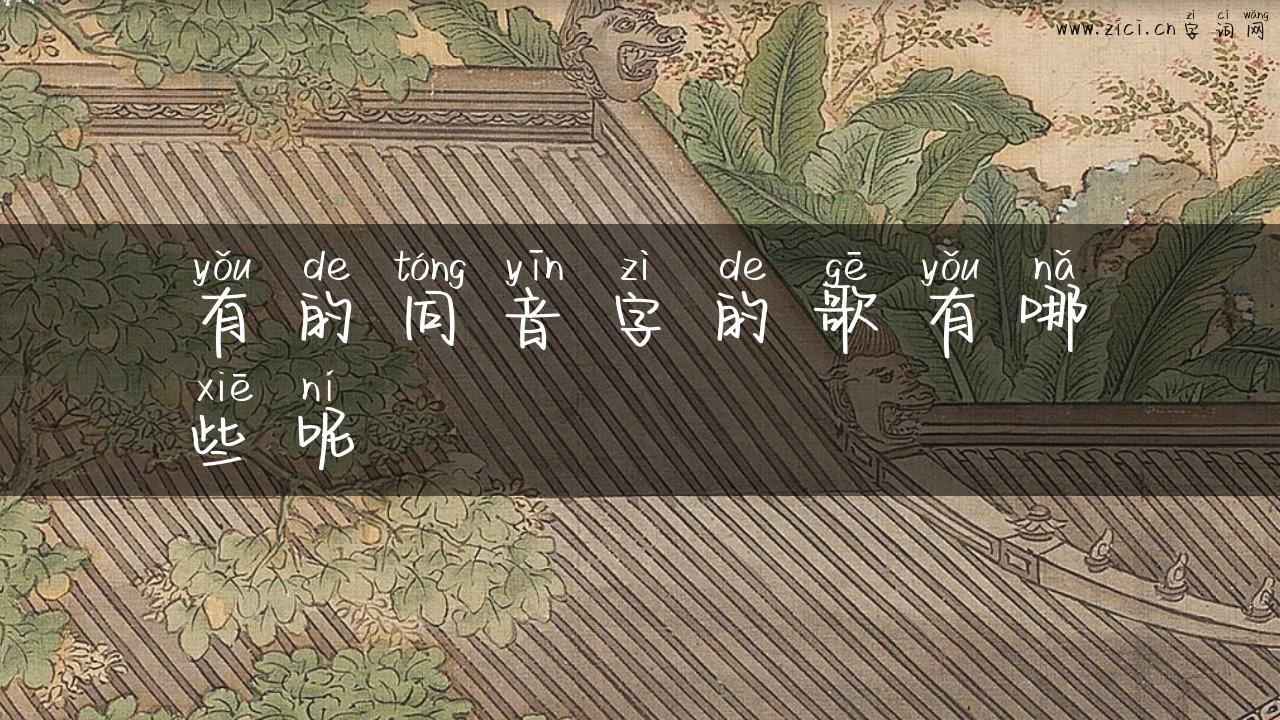 zì cí wǎng
www.zici.cn 字 词 网
yǒu de tóng yīn zì de gē yǒu nǎ
有 的 同 音 字 的 歌 有 哪
xiē ní
些 呢